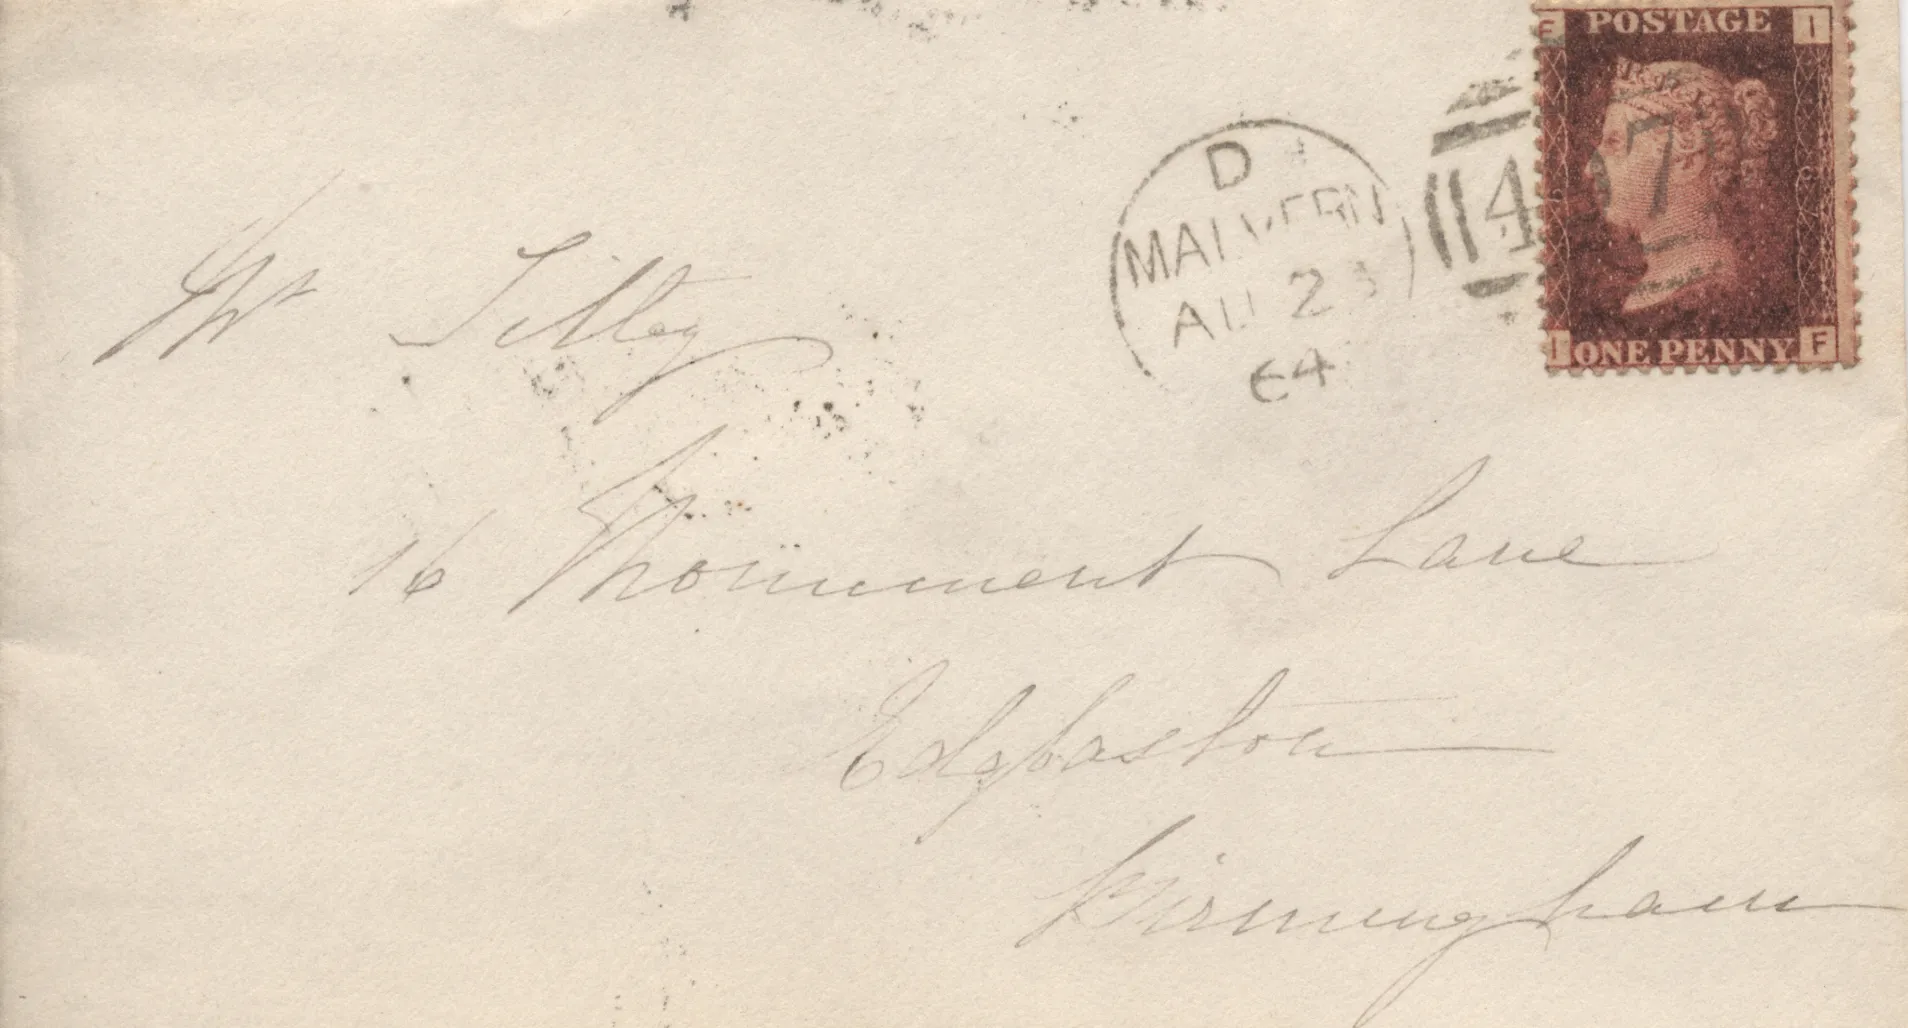 F POSTAGE I
I ONE PENNY F
497
D
MALVERN
AU 23
64
Mr Tilley
16 Monument Lane
Edgbaston
Birmingham